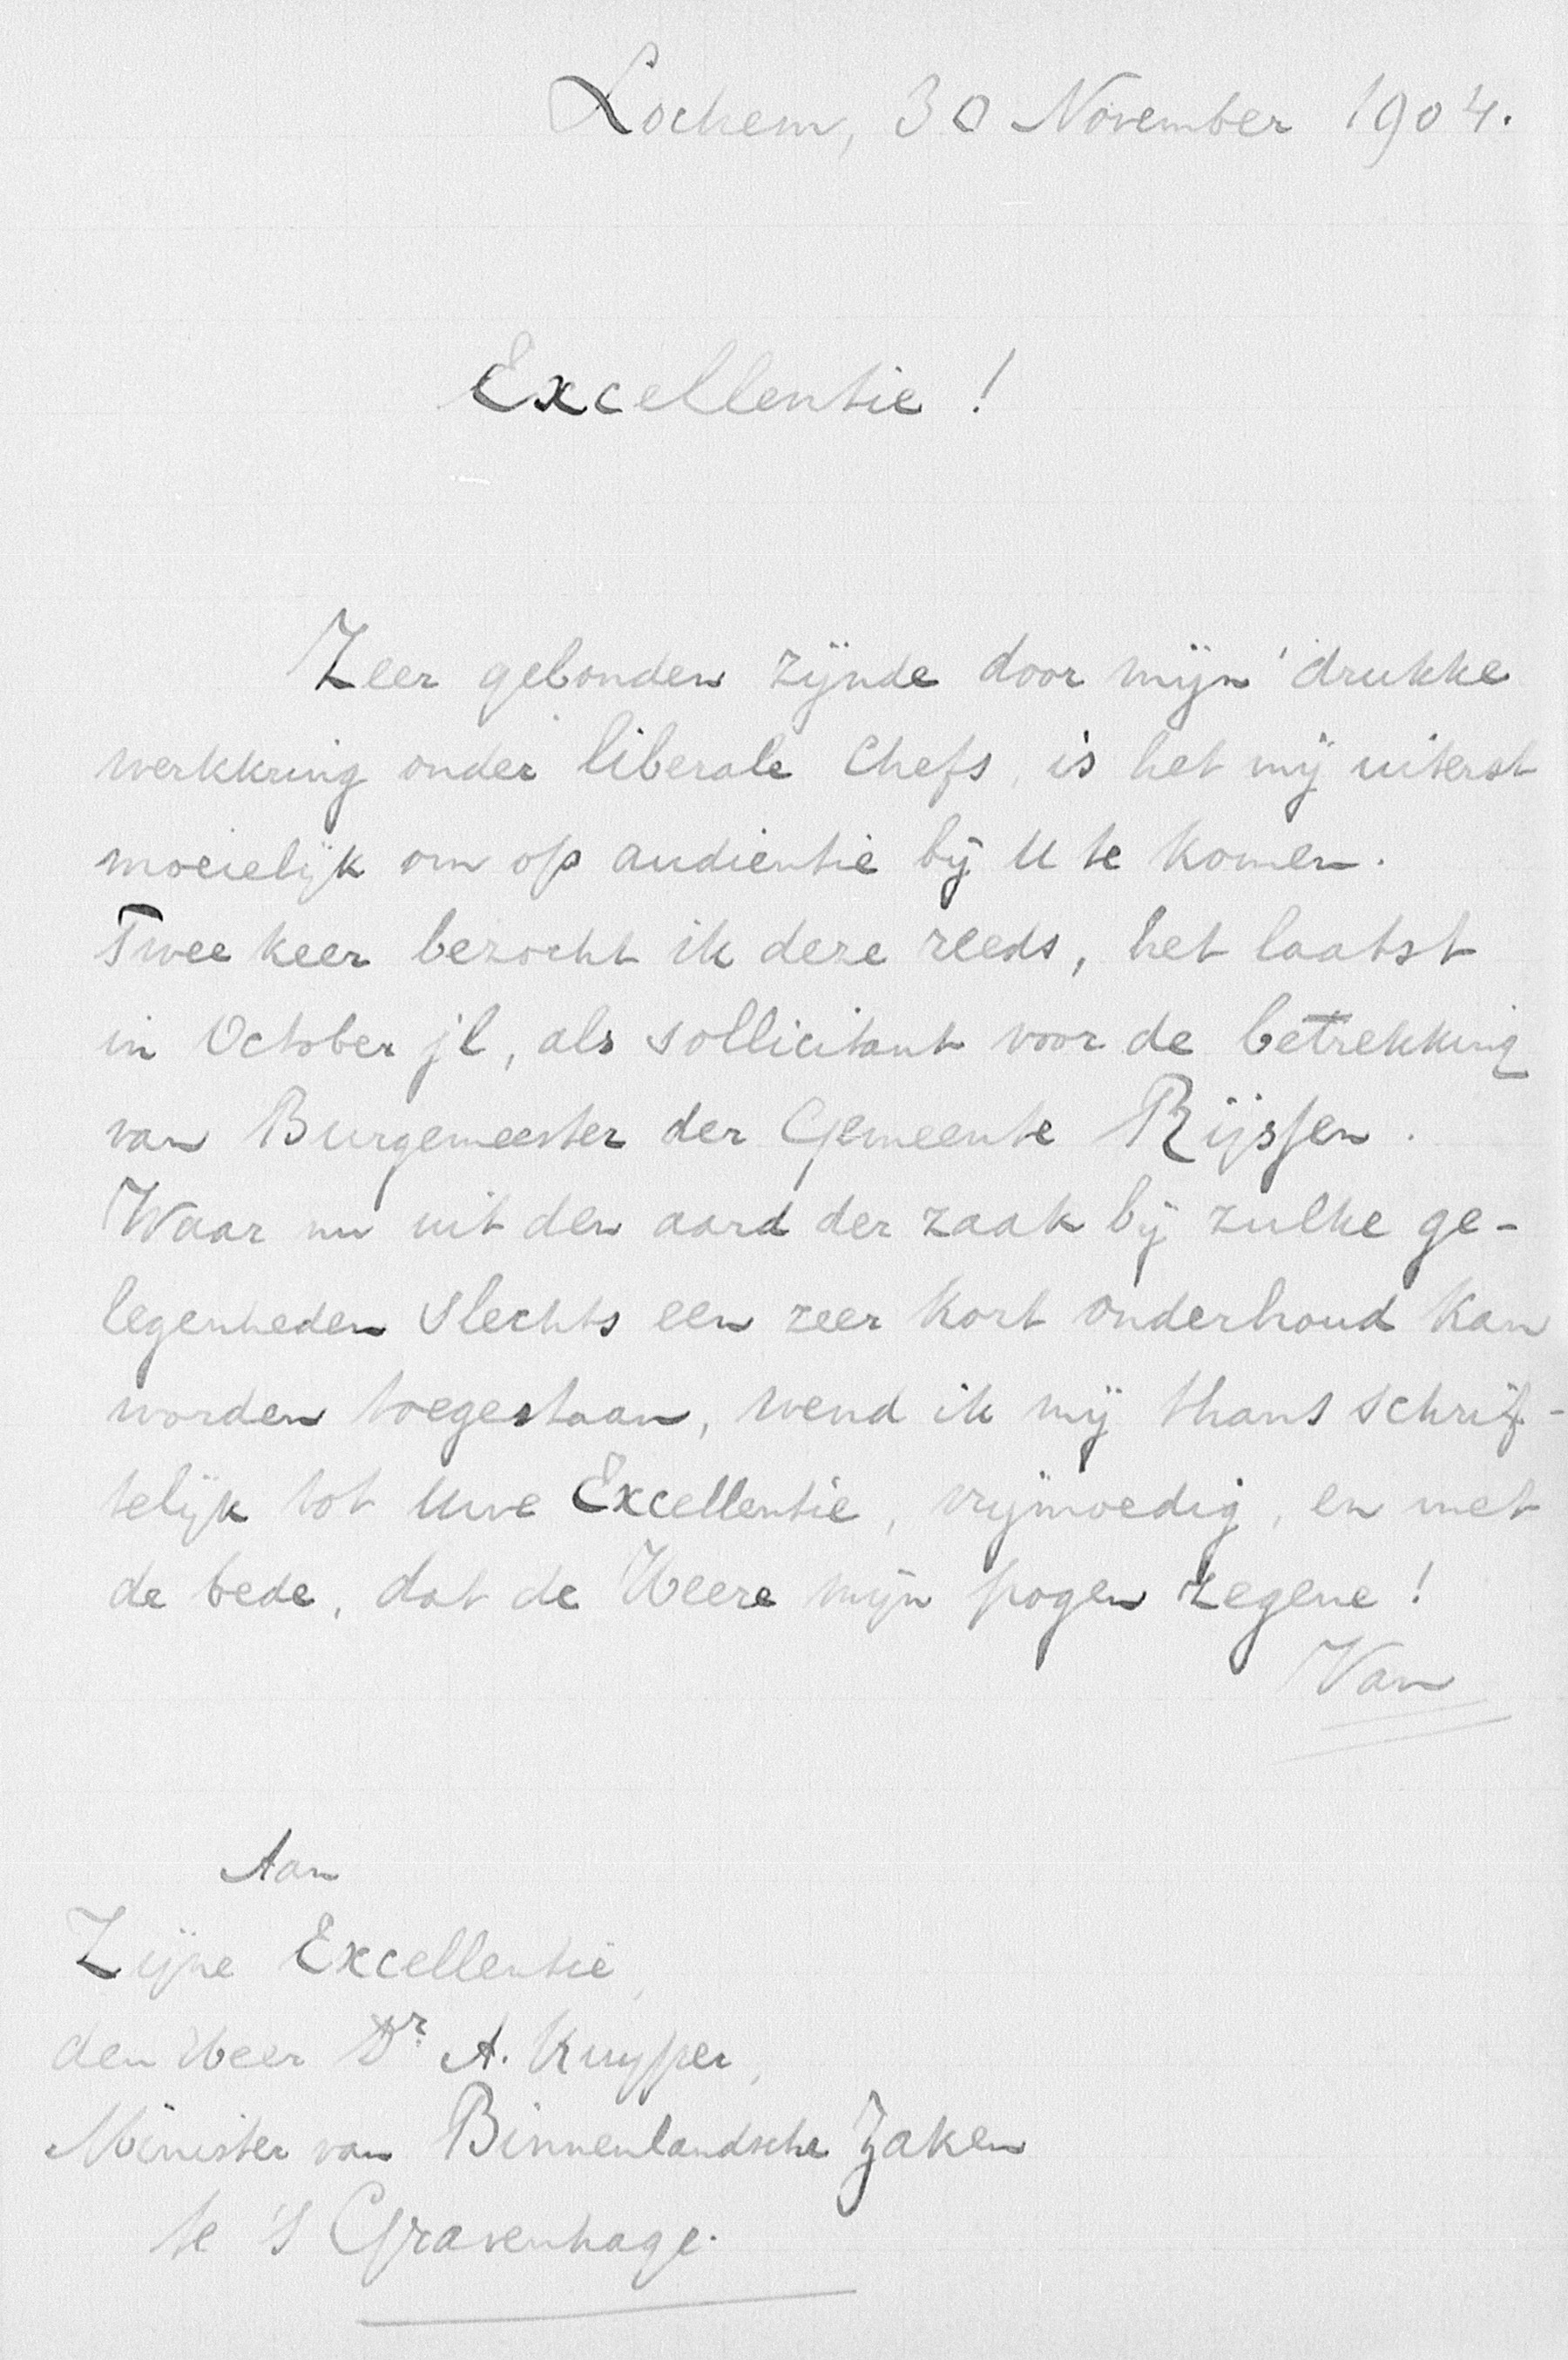 Lochem, 30 November 1904.
Excellentie!
Zeer gebonden zijnde door mijn drukke
werkkring onder liberale Chefs, is het mij uiterst
moeielijk om op audientie bij U te komen.
Twee keer bezocht ik deze reeds, het laatst
in October jl, als sollicitant voor de betrekking
van Burgemeester der Gemeente Rijssen.
Waar nu uit den aard der zaak bij zulke ge-
legenheden slechts een zeer kort onderhoud kan
worden toegestaan, wend ik mij thans schrif-
telijk tot Uwe Excellentie, vrijmoedig, en met
de bede, dat de Heere mijn pogen zegene!
Van
Aan
Zijne Excellentie,
den Heer Dr A. Kuyper,
Minister van Binnenlandsche Zaken
te 's Gravenhage.